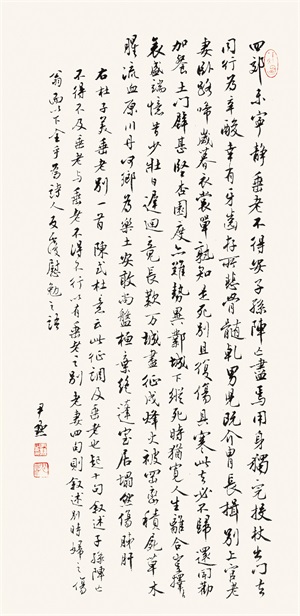 四郊未寧靜垂老不得安子孫陣亡盡焉用身獨完投杖出門去
同行為辛酸幸有牙齒存所悲骨髓乾男兒既介胄長揖別上官老
妻臥路啼歲暮衣裳單孰知是死別且復傷其寒此去必不歸還聞勸
加餐土門壁甚堅杏園度亦難勢異鄴城下縱死時猶寬人生離合豈擇
衰盛端憶昔少壯日遲迴竟長歎万國盡征戍烽火被岡巒積屍草木
腥流血原川丹何鄉為樂土安敢尚盤桓棄絕蓬室居塌然傷肺肝
右杜子美垂老別一首陳式杜意云此征調及垂老也起十句敘述子孫陣亡
不得不及垂老與垂老不得不行以有垂老之別老妻四句則敘述別時婦之傷
翁而以下全乎為詩人反覆慰勉之語
尹默